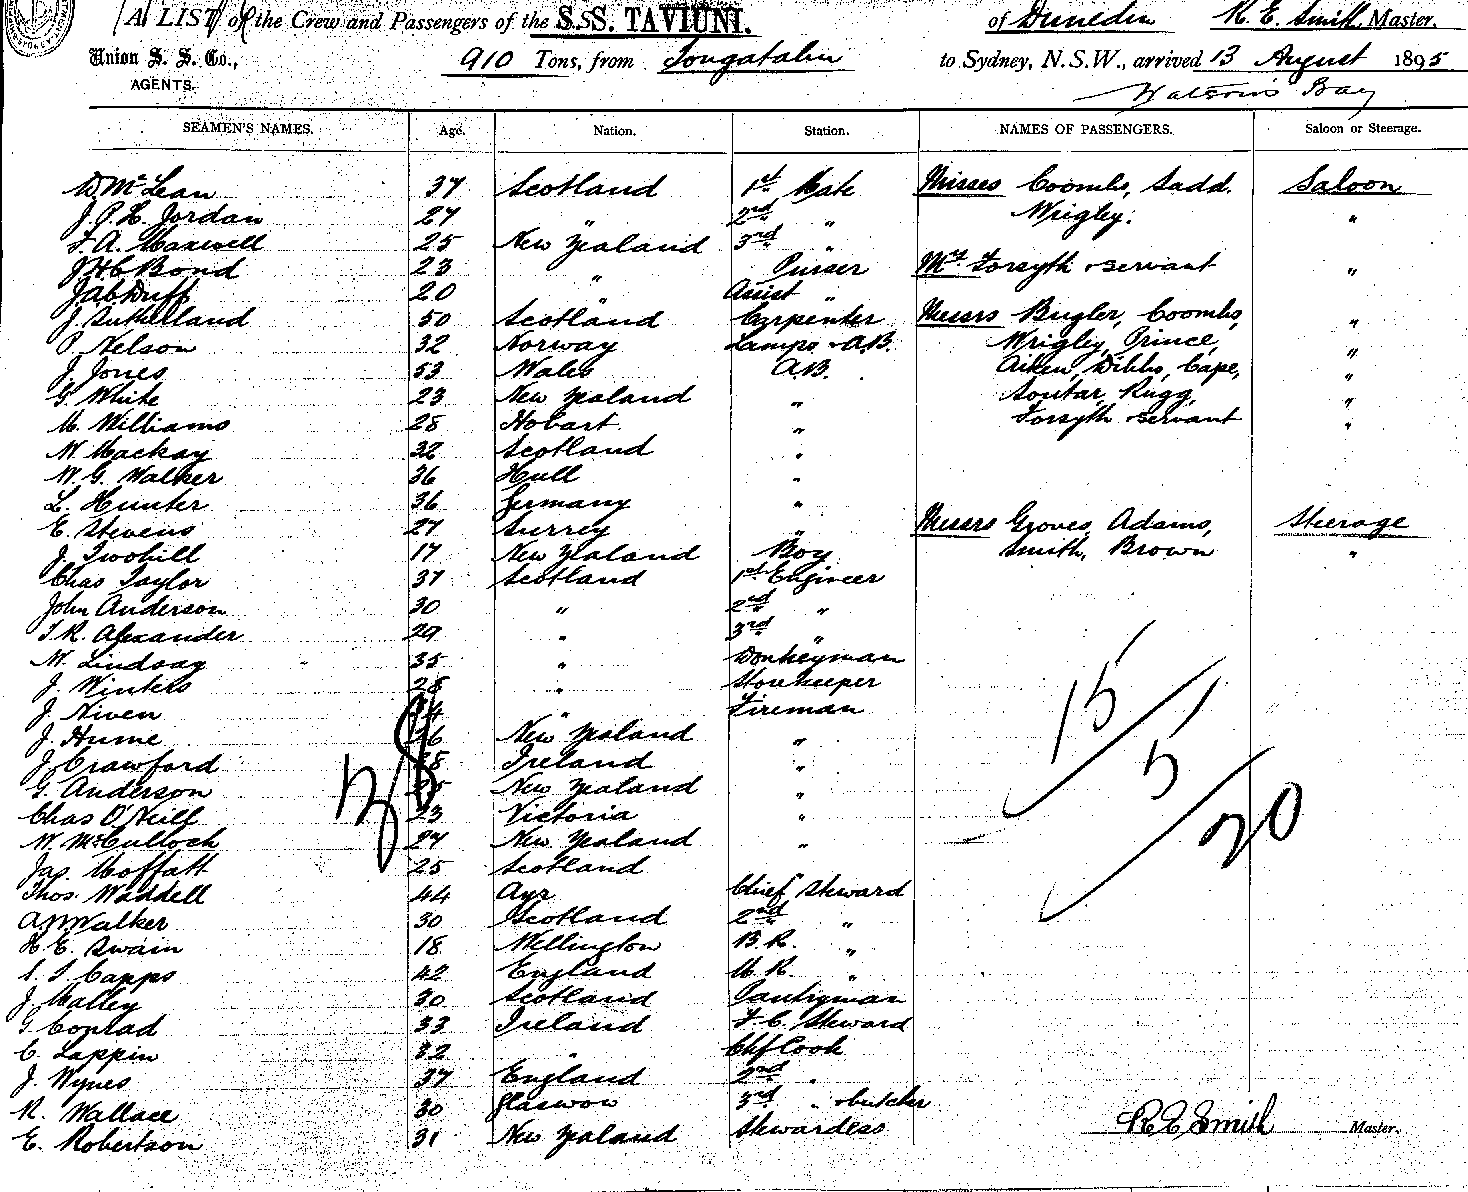 A LIST of the Crew and Passengers of the S.S. TAVIUNI. of Dunedin R. E. Smith Master.
Union S. S. Co., 910 Tons, from Tongatabu to Sydney, N.S.W., arrived 13 August 1895
AGENTS. Watson's Bay
SEAMEN'S NAMES. Age. Nation. Station. NAMES OF PASSENGERS. Saloon or Steerage.
D. McLean 37 Scotland 1st Mate Misses Coombs, Sadd. Saloon
J. P. L. Jordan 27 " 2nd " Wrigley. "
F. A. Maxwell 25 New Zealand 3rd "
J H C Bond 23 " Purser Mrs Forsyth & servant "
Duff 20 " Assist "
J. Sutherland 50 Scotland Carpenter Messrs Bugler, Coombs, "
P. Nelson 32 Norway Lamps & A.B. Wrigley, Prince, "
J. Jones 53 Wales A.B. Aiken, Dibbs, Cape, "
G. White 23 New Zealand " Soutar, Rugg, "
M. Williams 28 Hobart " Forsyth & servant "
W. Mackay 32 Scotland "
W. G. Walker 36 Hull "
L. Hunter 36 Germany "
E. Stevens 27 Surrey " Messrs Groves, Adams, Steerage
J. Twohill 17 New Zealand Boy Smith, Brown "
Chas Taylor 37 Scotland 1st Engineer
John Anderson 30 " 2nd "
T. R. Alexander 29 " 3rd "
W. Lindsay 35 " Donkeyman
J. Winters 28 " Storekeeper
J. Niven " Fireman
J. Hume 26 New Zealand "
J. Crawford Ireland "
G. Anderson 25 New Zealand "
Chas O'Neill 23 Victoria "
W. McCulloch 27 New Zealand "
Jas. Moffatt 25 Scotland "
Thos. Waddell 44 Ayr Chief Steward
A W Walker 30 Scotland 2nd "
H. E. Swain 18 Wellington B. R. "
Capps 42 England M. R. "
J. Malley 30 Scotland Pantryman
G. Conrad 33 Ireland F. C. Steward
C. Lappin 32 " Chf Cook
J. Wynes 37 England 2nd "
R. Wallace 30 Glasgow 3rd " & butcher
E. Robertson 31 New Zealand Stewardess
15
5
20
38
R E Smith Master.